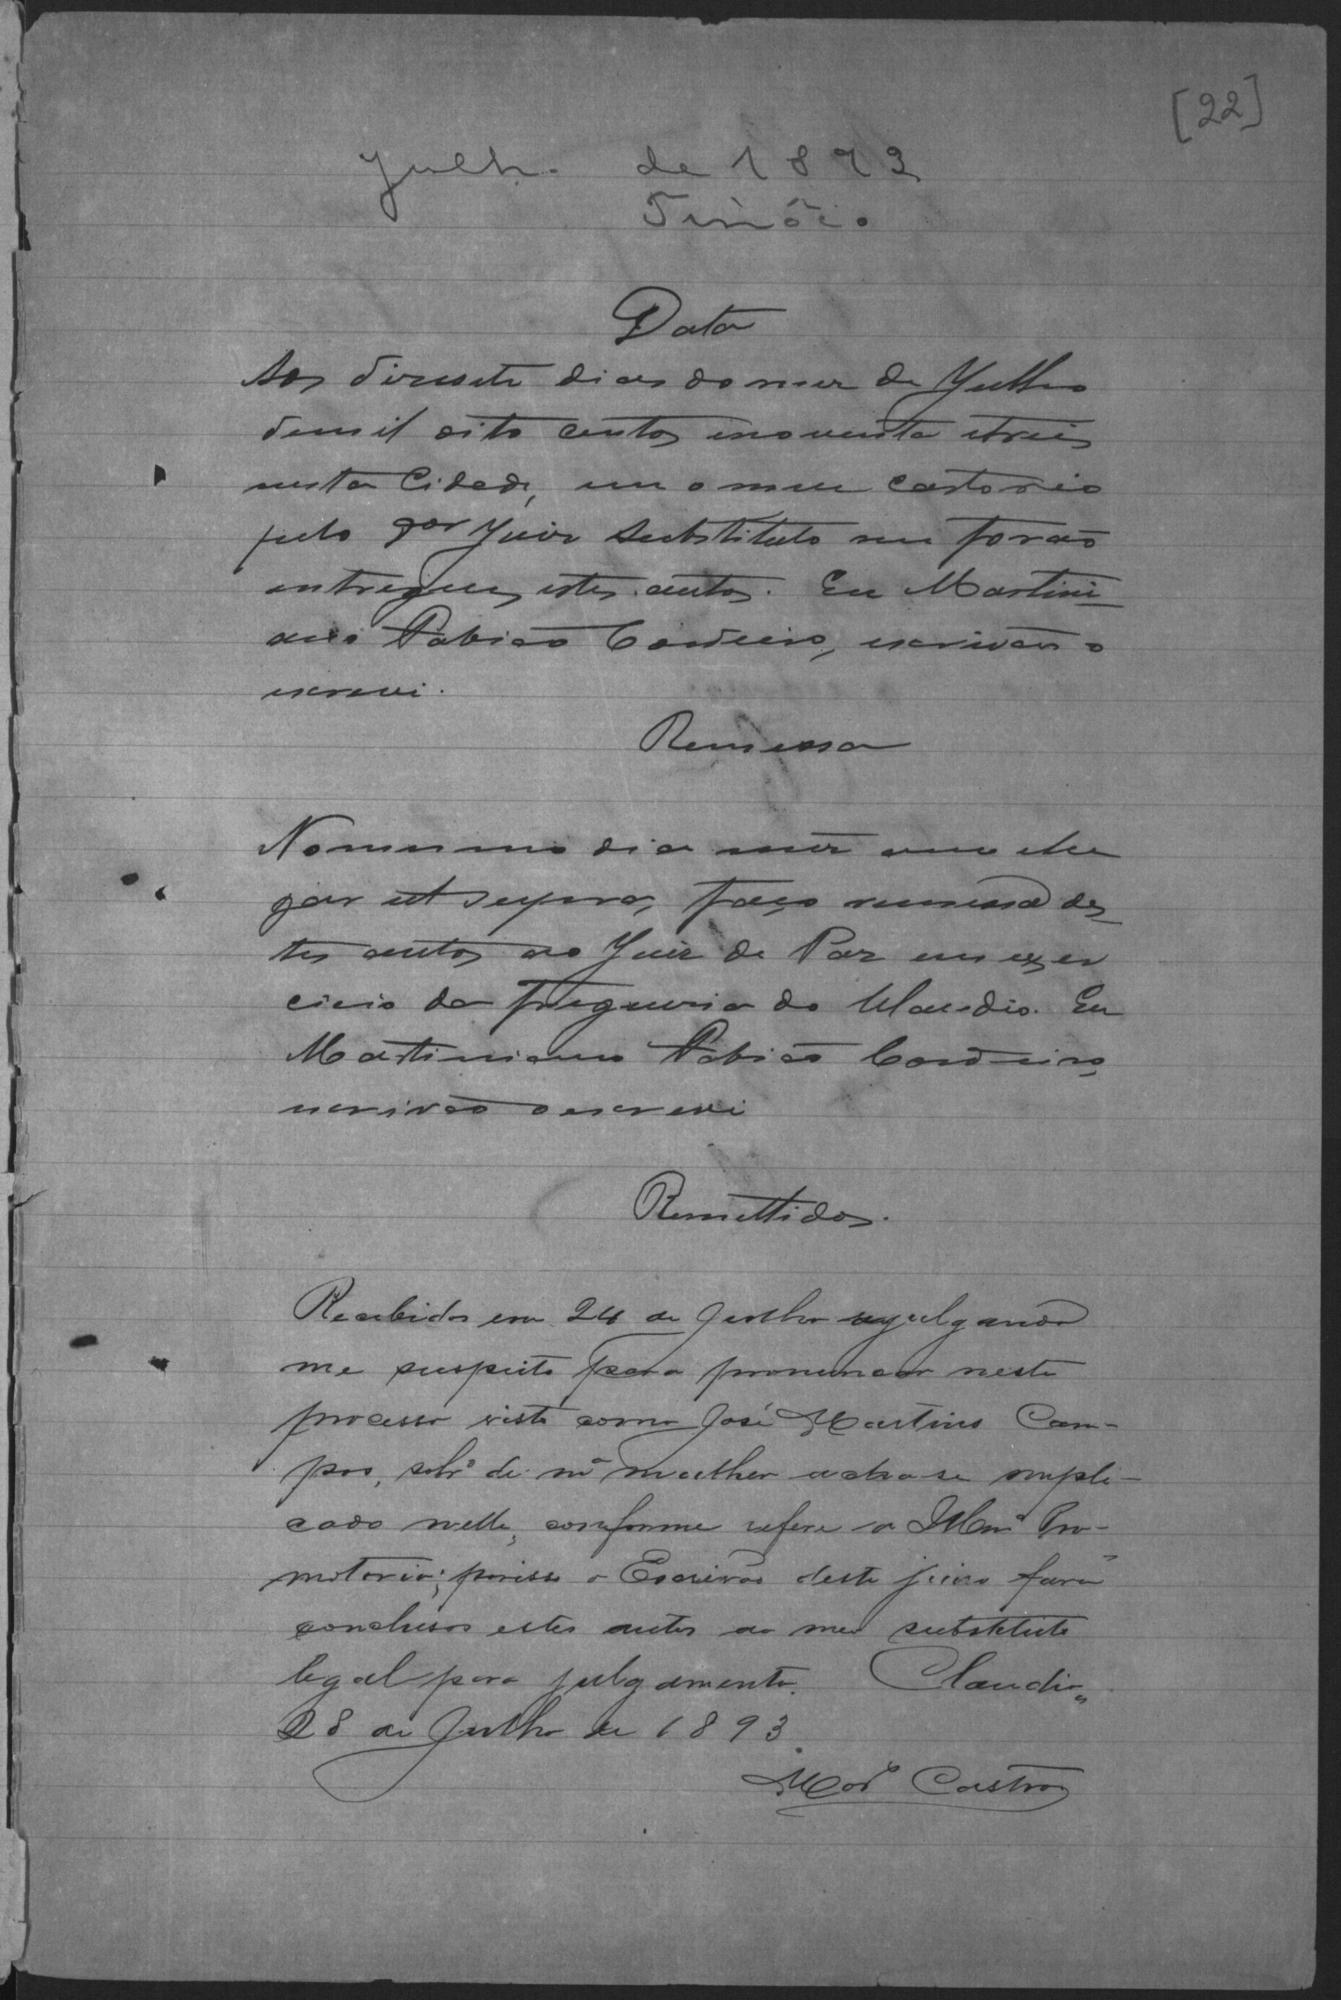 [22]
Julho de 1893
Data
Aos desesete dias do mez de Julho
demil oito centos enoventa etreis
nesta Cidade, em o meu cartorio
pelo Juiz Substituto me forão
entregues estes autos. Eu Martini-
ano Fabião Cordeiro, escrivão o
escrevi.
Remessa
No mesmo dia mez anno elu
gar ut supra, faço remessa des-
tes autos ao Juiz de Paz em exer
cicio da freguesia do Claudio. Eu
Martiniano Fabião Cordeiro,
escrivão o escrevi
Remettidos.
Recebidos em 24 de Julho julgando
me suspeito para pronunciar neste
processo visto como José Martins Cam-
pos, sobrº de mª mulher acha-se impli-
cado nelle, conforme refere a Pro-
motoria; porisso o Escrivão deste juizo fará
conclusos estes autos ao meu substituto
legal para julgamento. Claudio,,
28 de Julho de 1893.
Castro